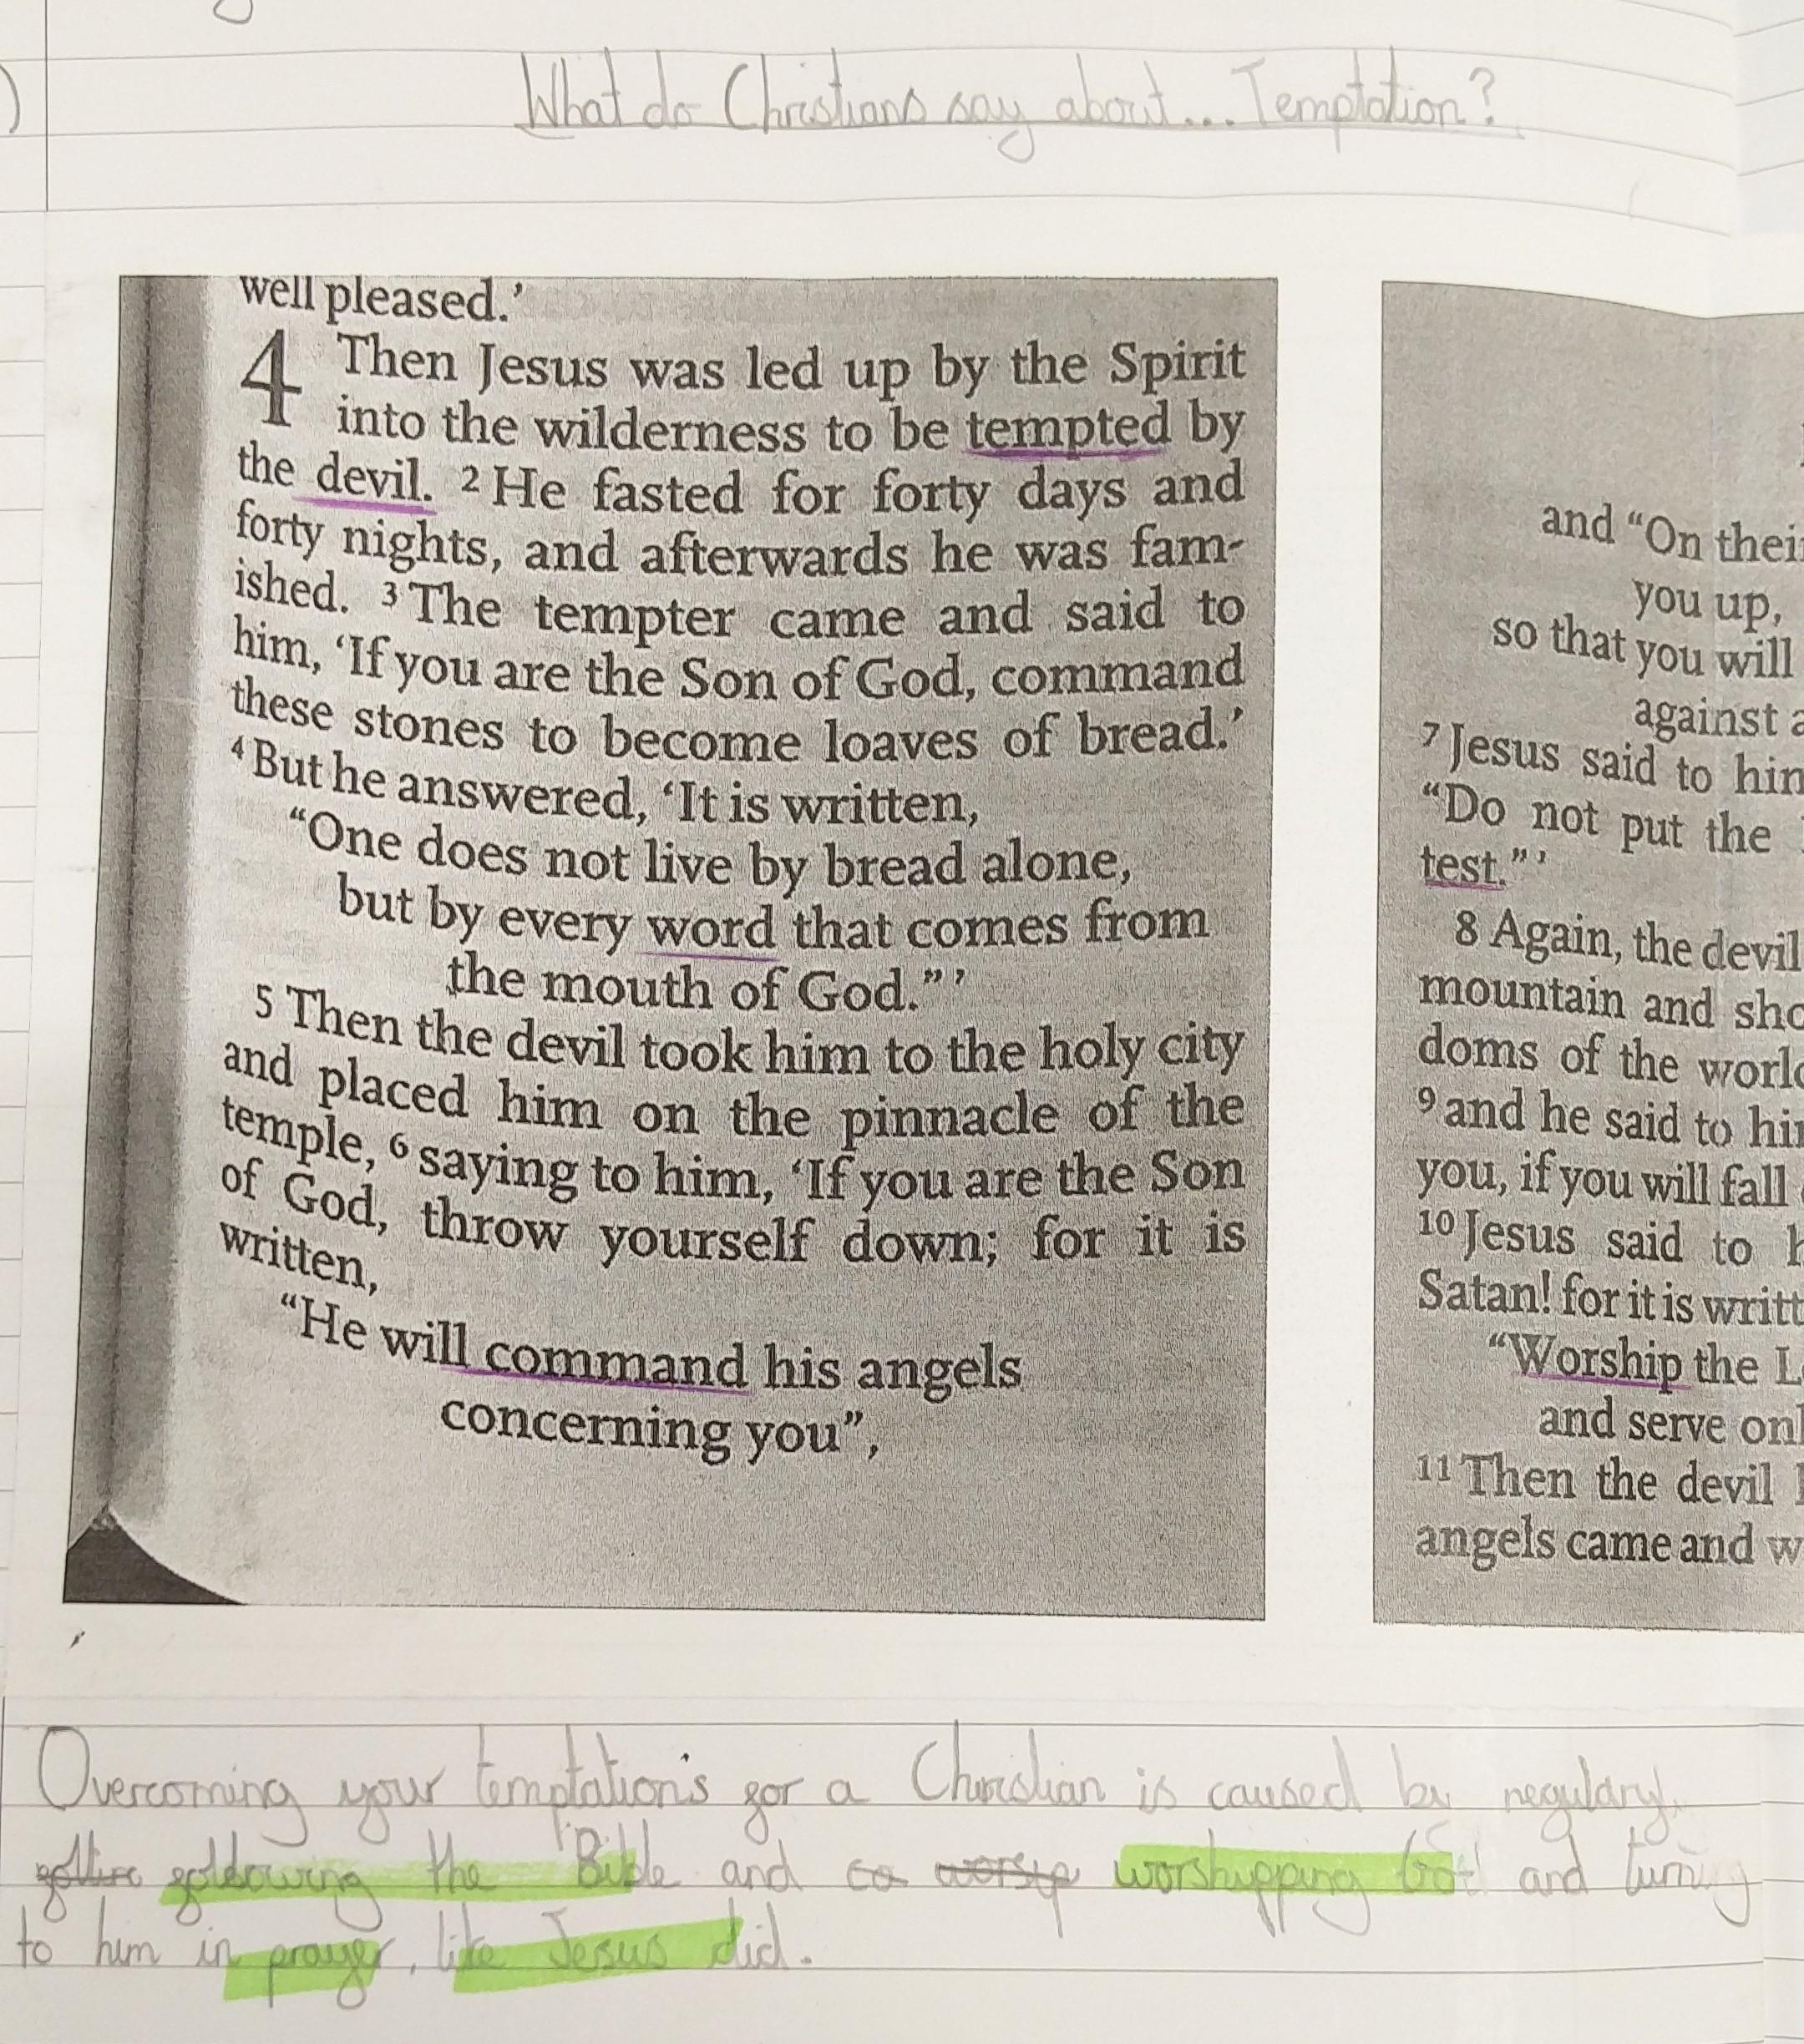 What do Christians say about... Temptation?
well pleased.’
4 Then Jesus was led up by the Spirit
into the wilderness to be tempted by
the devil. 2 He fasted for forty days and
forty nights, and afterwards he was fam-
ished. 3 The tempter came and said to
him, ‘If you are the Son of God, command
these stones to become loaves of bread.’
4 But he answered, ‘It is written,
“One does not live by bread alone,
but by every word that comes from
the mouth of God.” ’
5 Then the devil took him to the holy city
and placed him on the pinnacle of the
temple, 6 saying to him, ‘If you are the Son
of God, throw yourself down; for it is
written,
“He will command his angels
concerning you”,
and “On thei
you up,
so that you will
against a
7 Jesus said to him
“Do not put the
test.” ’
8 Again, the devil
mountain and sho
doms of the world
9 and he said to him
you, if you will fall
10 Jesus said to h
Satan! for it is writt
“Worship the L
and serve onl
11 Then the devil l
angels came and w
Overcoming your temptation's for a Christian is caused by regulary
following the Bible and worshipping God and turning
to him in prayer, like Jesus did.